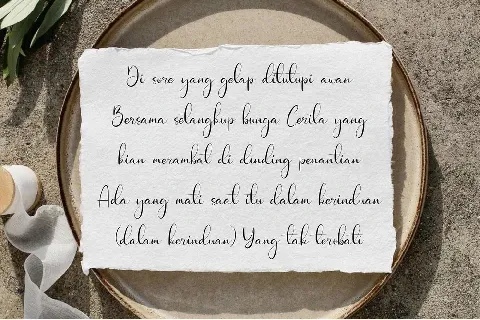 Di sore yang gelap ditutupi awan
Bersama setangkup bunga Cerita yang
kian merambat di dinding penantian
Ada yang mati saat itu dalam kerinduan
(dalam kerinduan) Yang tak terobati